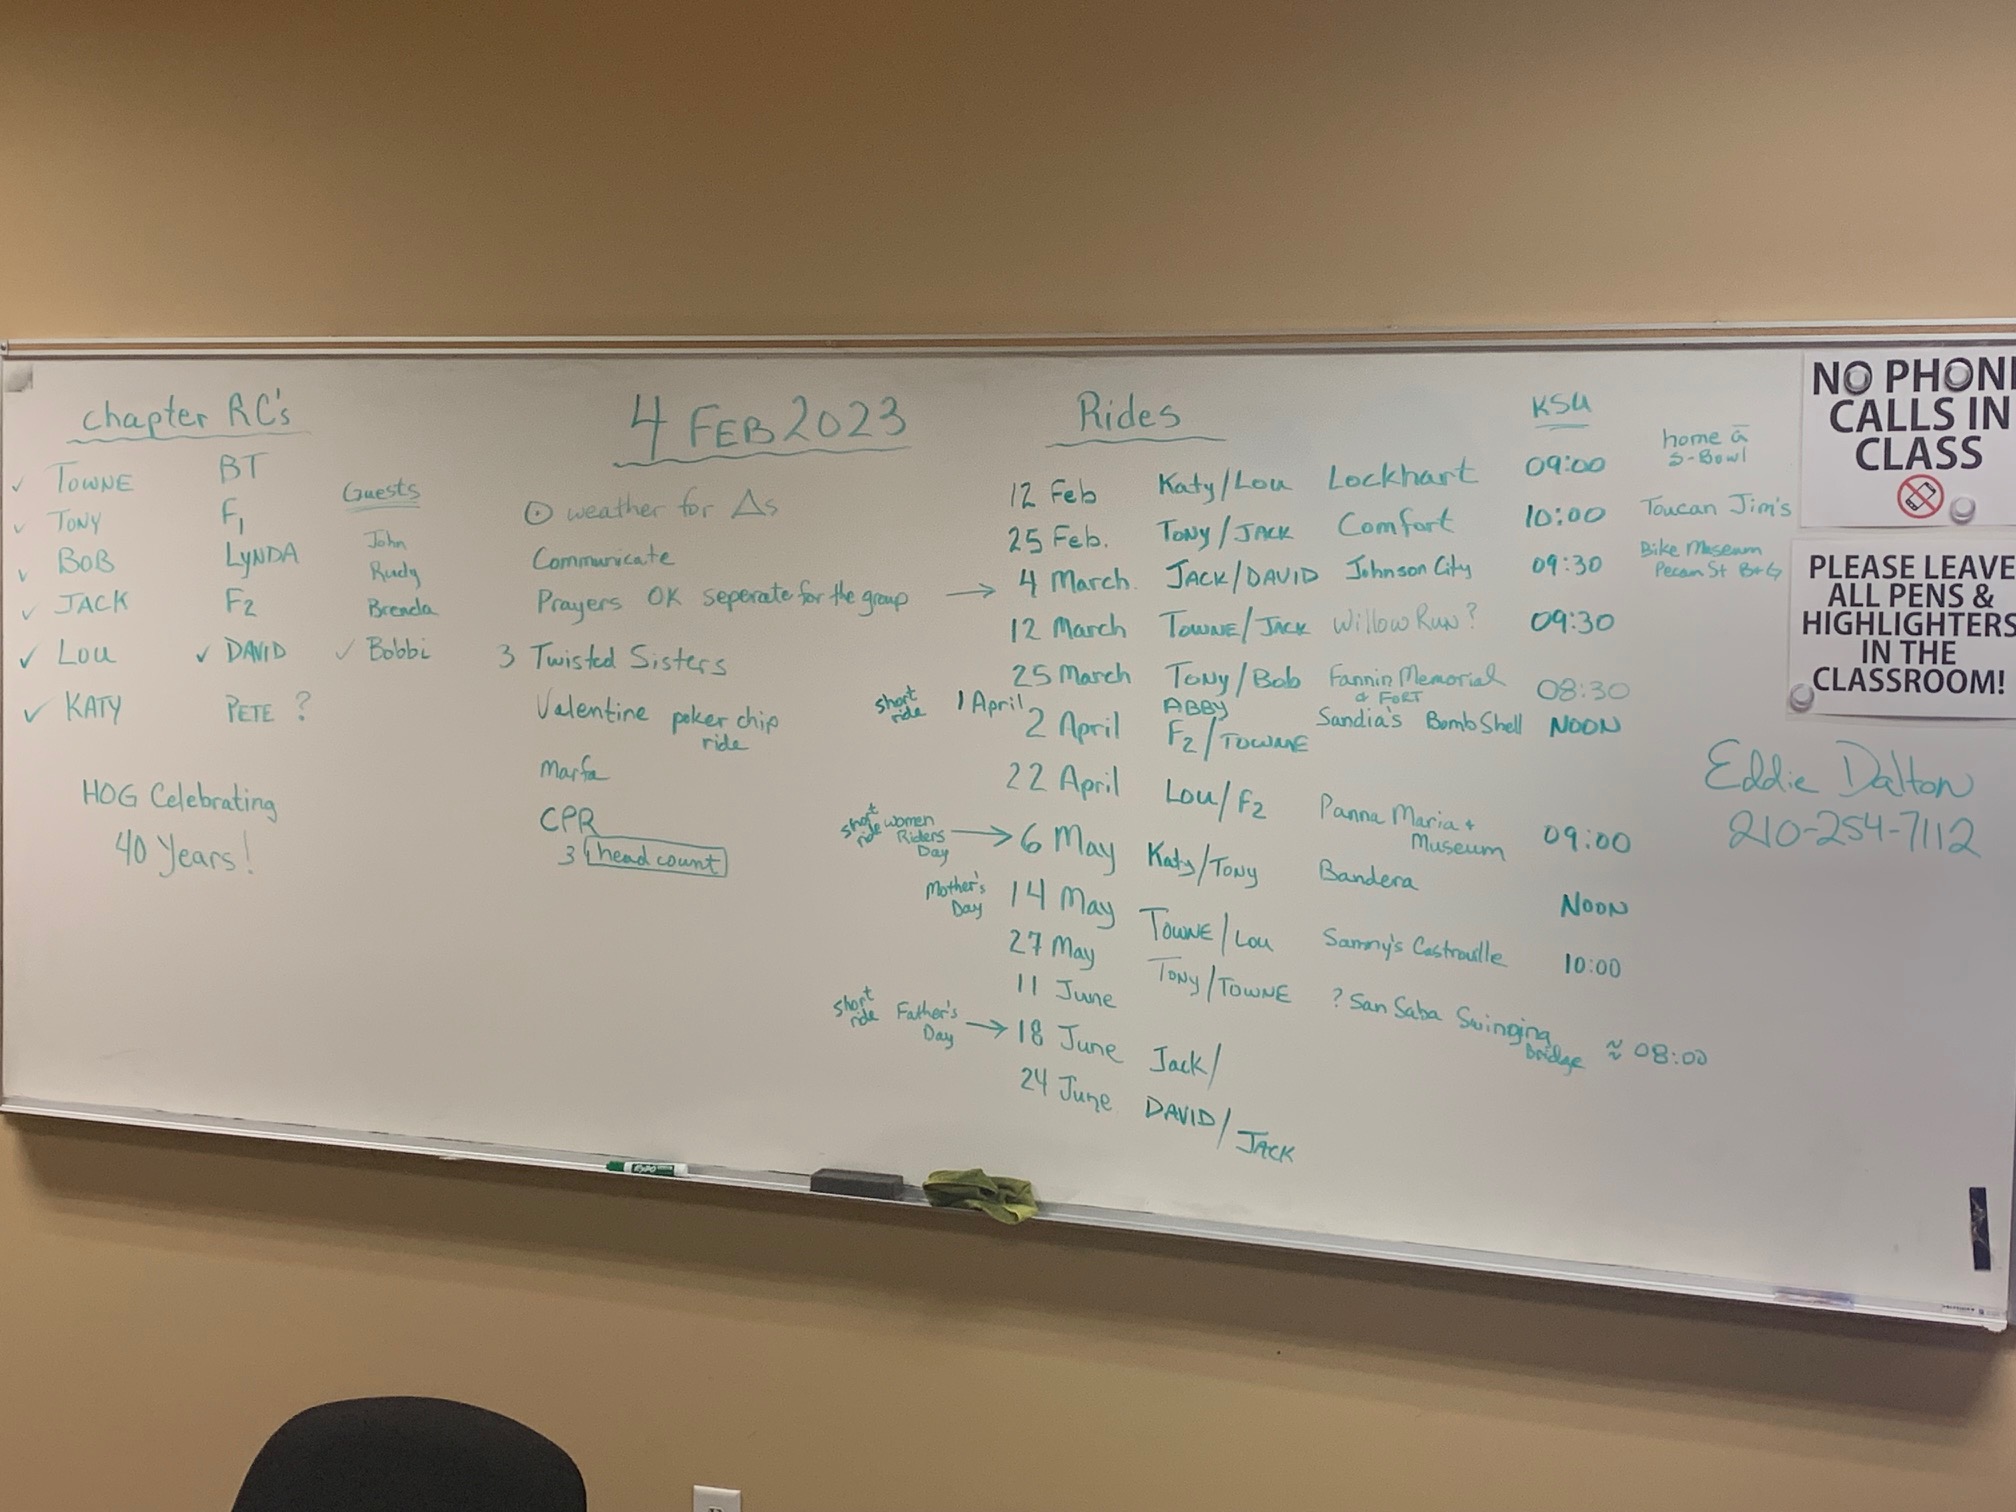 chapter RC's
✓ TOWNE BT
✓ TONY F1
✓ BOB LYNDA
✓ JACK F2
✓ LOU ✓ DAVID
✓ KATY PETE ?
Guests
John
Rudy
Brenda
✓ Bobbi
HOG Celebrating
40 Years!
4 FEB 2023
⊙ weather for Δs
Communicate
Prayers OK seperate for the group
3 Twisted Sisters
Valentine poker chip
ride
Marfa
CPR
3 head count
Rides KSU
12 Feb Katy/Lou Lockhart 09:00 home ā
S-Bowl
25 Feb. Tony/JACK Comfort 10:00 Toucan Jim's
→ 4 March. JACK/DAVID Johnson City 09:30 Bike Museum
Pecan St B+G
12 March TOWNE/JACK Willow Run? 09:30
25 March Tony/Bob Fannin Memorial 08:30
& FORT
short
ride
1 April ABBY
2 April F2/TOWNE Sandia's BombShell NOON
22 April LOU/F2 Panna Maria + 09:00
Museum
short
ride
Women
Riders
Day
→ 6 May Katy/Tony Bandera NOON
Mother's
Day
14 May TOWNE/LOU Sammy's Castroville 10:00
27 May Tony/TOWNE ? San Saba Swinging
Bridge ≈ 08:00
11 June
short
ride
Father's
Day
→ 18 June Jack/
24 June DAVID/JACK
NO PHON
CALLS IN
CLASS
PLEASE LEAVE
ALL PENS &
HIGHLIGHTERS
IN THE
CLASSROOM!
Eddie Dalton
210-254-7112
EXPO